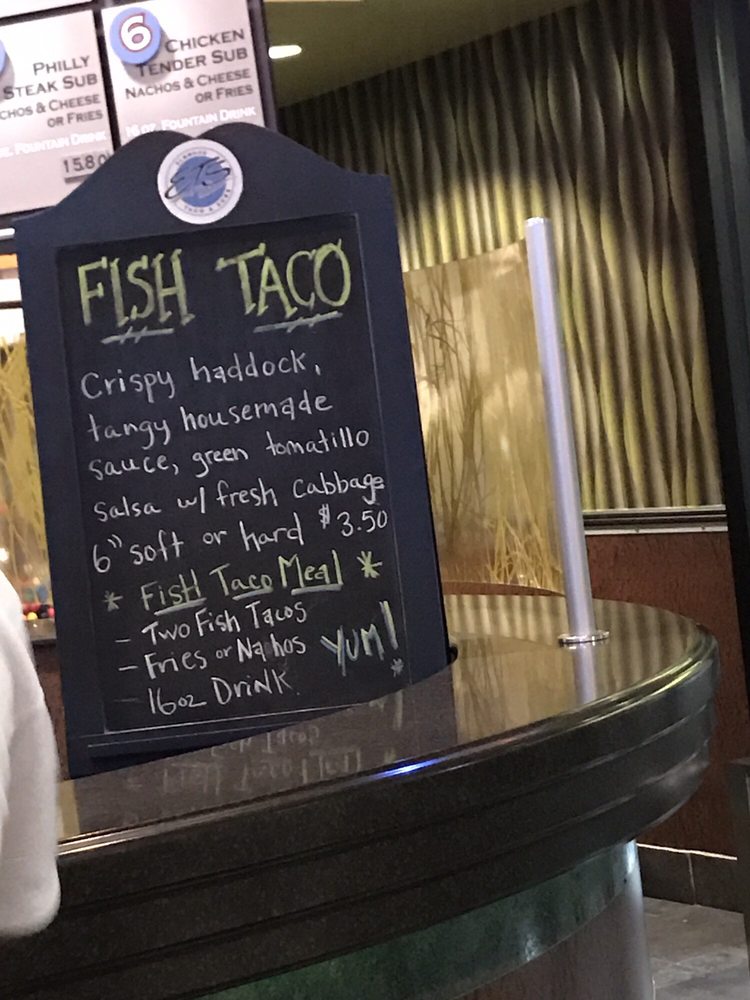 PHILLY
STEAK SUB
NACHOS & CHEESE
OR FRIES
FOUNTAIN DRINK
15.80
6
CHICKEN
TENDER SUB
NACHOS & CHEESE
OR FRIES
16 OZ. FOUNTAIN DRINK
FISH TACO
Crispy haddock,
tangy housemade
sauce, green tomatillo
salsa w/ fresh cabbage
6" soft or hard $3.50
* FISH TACO MEAL *
- Two Fish Tacos
- Fries or Nachos
YUM!
- 16oz DRINK *